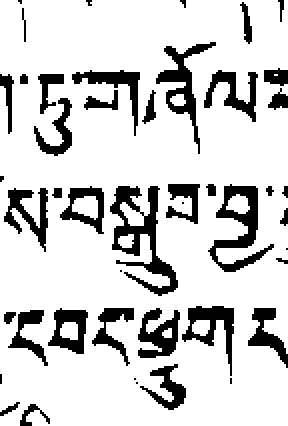 དུ་གཞོལ་
ས་བསྒྲུབ་བྱ་
དབང་ཕྱུག་